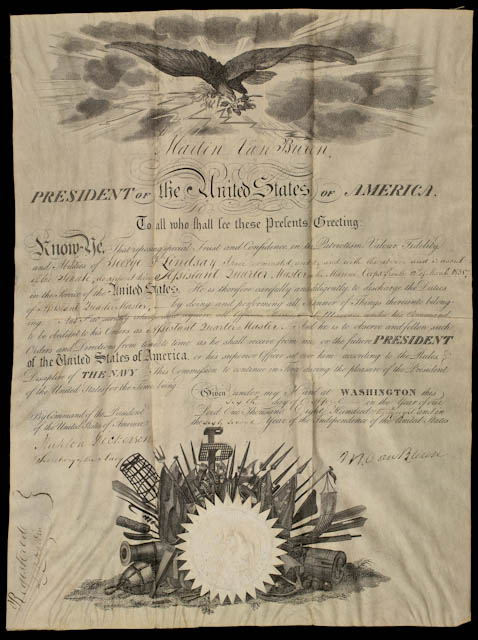 Martin Van Buren,
PRESIDENT OF the United States OF AMERICA.
To all who shall see these Presents, Greeting:
Know Ye, That reposing special Trust and Confidence in the Patriotism, Valour, Fidelity,
and Abilities of George F Lindsay I have nominated, and, and with the advice and consent
of the Senate, do appoint him Assistant Quarter Master,
in the Service of the United States. He is therefore carefully and diligently to discharge the Duties
of Assistant Quarter Master, by doing and performing all Manner of Things thereunto belong-
ing. And
to be obedient to his Orders as Assistant Quarter Master. And he is to observe and follow such
Orders and Directions from time to time as he shall receive from me, or the future PRESIDENT
of the United States of America, or his superior Officer set over him, according to the Rules &
Discipline of THE NAVY. This Commission to continue in force during the pleasure of the President
of the United States for the time being.
Given under my Hand at WASHINGTON this
day of in the Year of our
Lord One Thousand Eight Hundred and in
the Year of the Independence of the United States
By Command of the President
of the United States of America
Mahlon Dickerson
Secretary of the Navy
M Van Buren
Registered